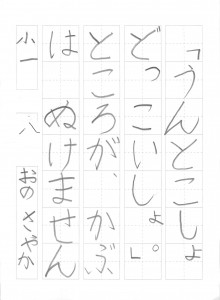 「うんとこしょ
どっこいしょ。」
ところが、かぶ
は ぬけません
小一 八 おの さやか